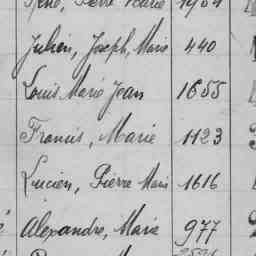 René, Pierre Marie 1964
Julien, Joseph, Marie 440
Louis Marie Jean 1655
Francis, Marie 1123
Lucien, Pierre Marie 1616
Alexandre, Marie 977